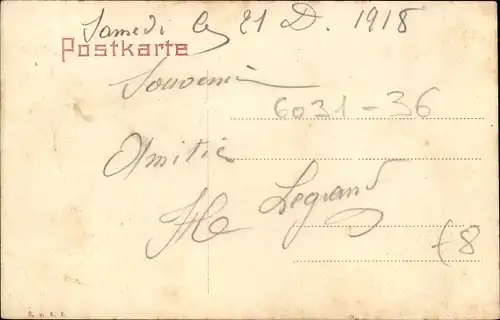 Samedi le 21 D. 1918
Postkarte
Souvenir
6031-36
Amitié
Legrand
€8